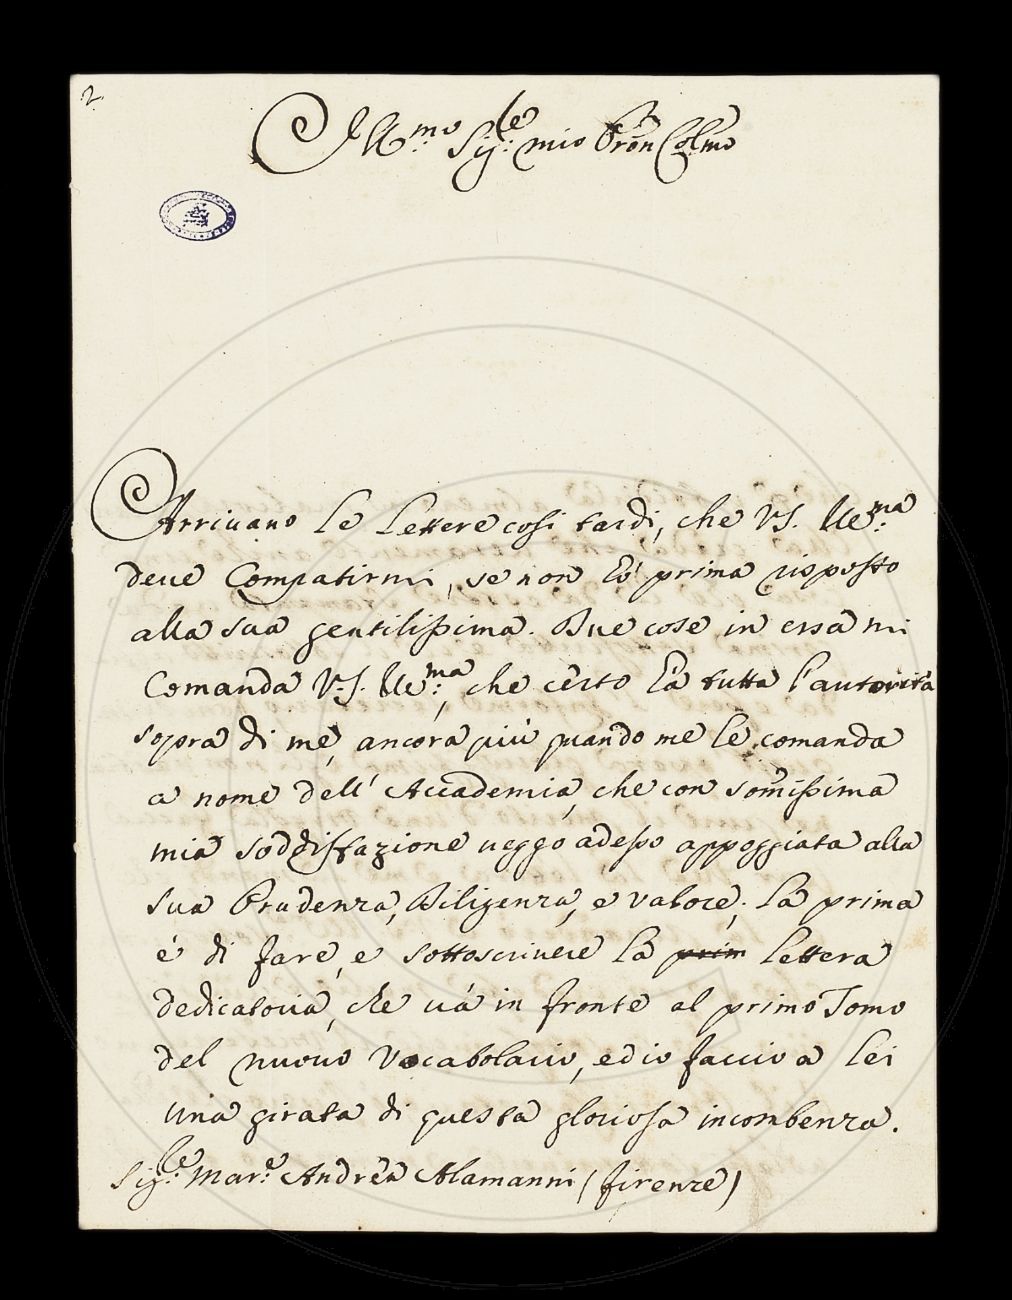 2.
Ill.mo Sig.re mio Pron Col.mo
Arrivano le lettere cosi tardi, che V.S. Ill.ma
deve Compatirmi, se non ò prima risposto
alla sua gentilissima. Due cose in essa mi
Comanda V.S. Ill.ma, che certo à tutta l'autorità
sopra di me, ancora più quando me le comanda
a nome dell'Accademia, che con somissima
mia soddisfazione veggo adesso appoggiata alla
sua Prudenza, Diligenza, e valore; La prima
è di fare, e sottoscrivere la prim lettera
dedicatoria, che và in fronte al primo Tomo
del nuovo Vocabolario, ed io faccio a lei
una girata di questa gloriosa incombenza.
Sig.re Mar.e Andrea Alamanni (firenze)